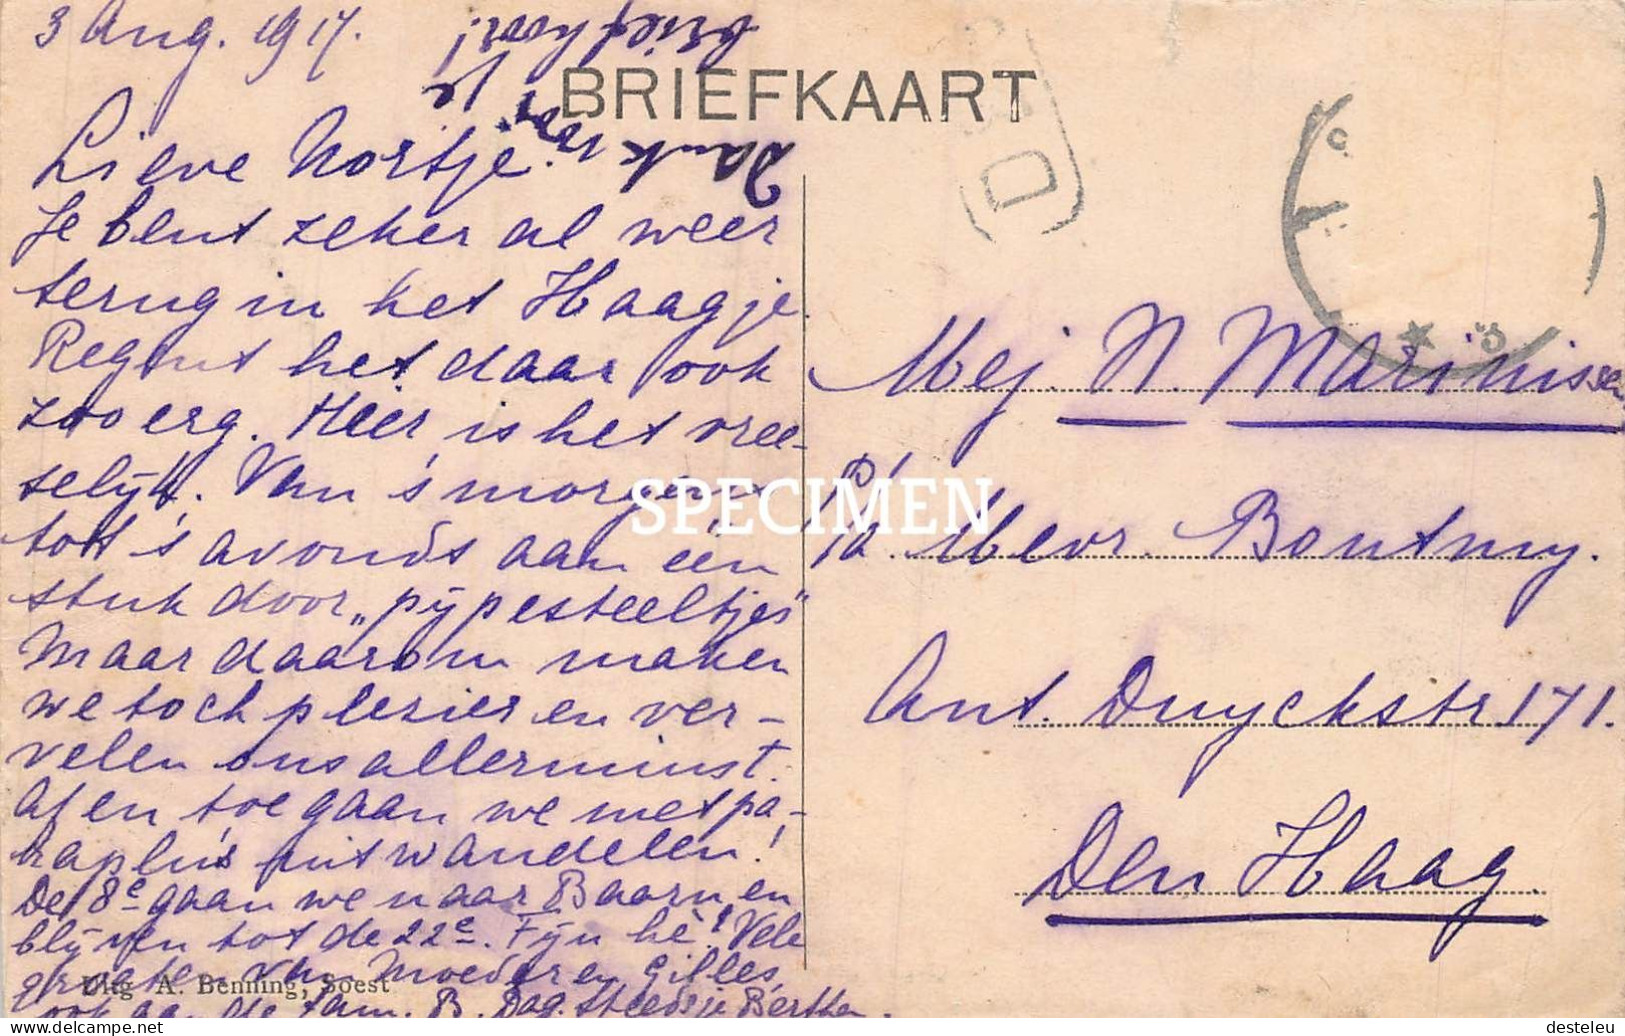 3 Aug. 1917.
Dank voor je
briefkaart!
BRIEFKAART
Lieve Nortje.
Je bent zeker al weer
terug in het Haagje.
Regent het daar ook
zoo erg. Hier is het vree-
selijk. Van 's morgens
tot 's avonds aan één
stuk door „pijpesteeltjes"
Maar daarom maken
we toch plezier en ver-
velen ons allerminst.
Af en toe gaan we met pa-
raplu's uit wandelen!
De 8e gaan we naar Baarn en
blijven tot de 22e. Fijn hè! Vele
groeten van Moeder en Gilles,
ook aan de fam. B. Dag. Steeds je Bertha.
Mej. N. Marinissen
p/a. Mevr. Boutmy.
Ant. Duyckstr 171.
Den Haag.
Uitg A. Benning, Soest
SPECIMEN
delcampe.net
desteleu